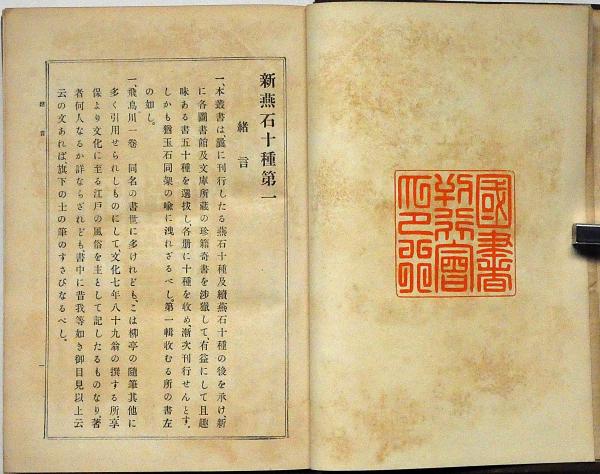 國書
刊行會
印行
新燕石十種第一
緒言
一、本叢書は、曩に刊行したる燕石十種及續燕石十種の後を承け、新
に各圖書館及文庫所藏の珍籍奇書を涉獵して、有益にして且趣
味ある書五十種を選拔し、各册に十種を收め、漸次刊行せんとす、
しかも瓊玉石同架の喩に洩れざるべし、第一輯收むる所の書左
の如し。
一、飛鳥川一卷　同名の書世に多けれども、こは柳亭の隨筆其他に
多く引用せられしものにして、文化七年八十九翁の撰する所、享
保より文化に至る江戸の風俗を主として記したるものなり、著
者何人なるか詳ならざれども、書中に昔我等如き御目見以上云
云の文あれば、旗下の士の筆のすさびなるべし。
緒言
一